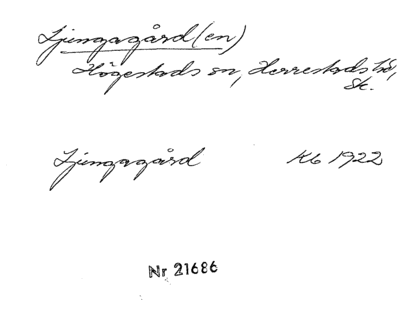 Ljungagård (en)
Högestads sn, Herrestads hd,
Sk.
Ljungagård Kb 1922
Nr 21686